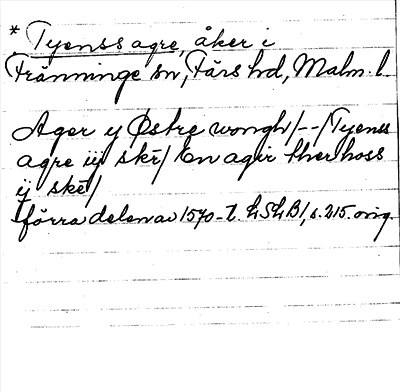 * Tyenss agre, åker i
Fränninge sn, Färs hd, Malm. l.
Ager y Østre wongh/--/Tyenss
agre iij skē/ En agir ther hoss
ij skē/
förra delen av 1570-t. LSLB1, s. 215. orig.